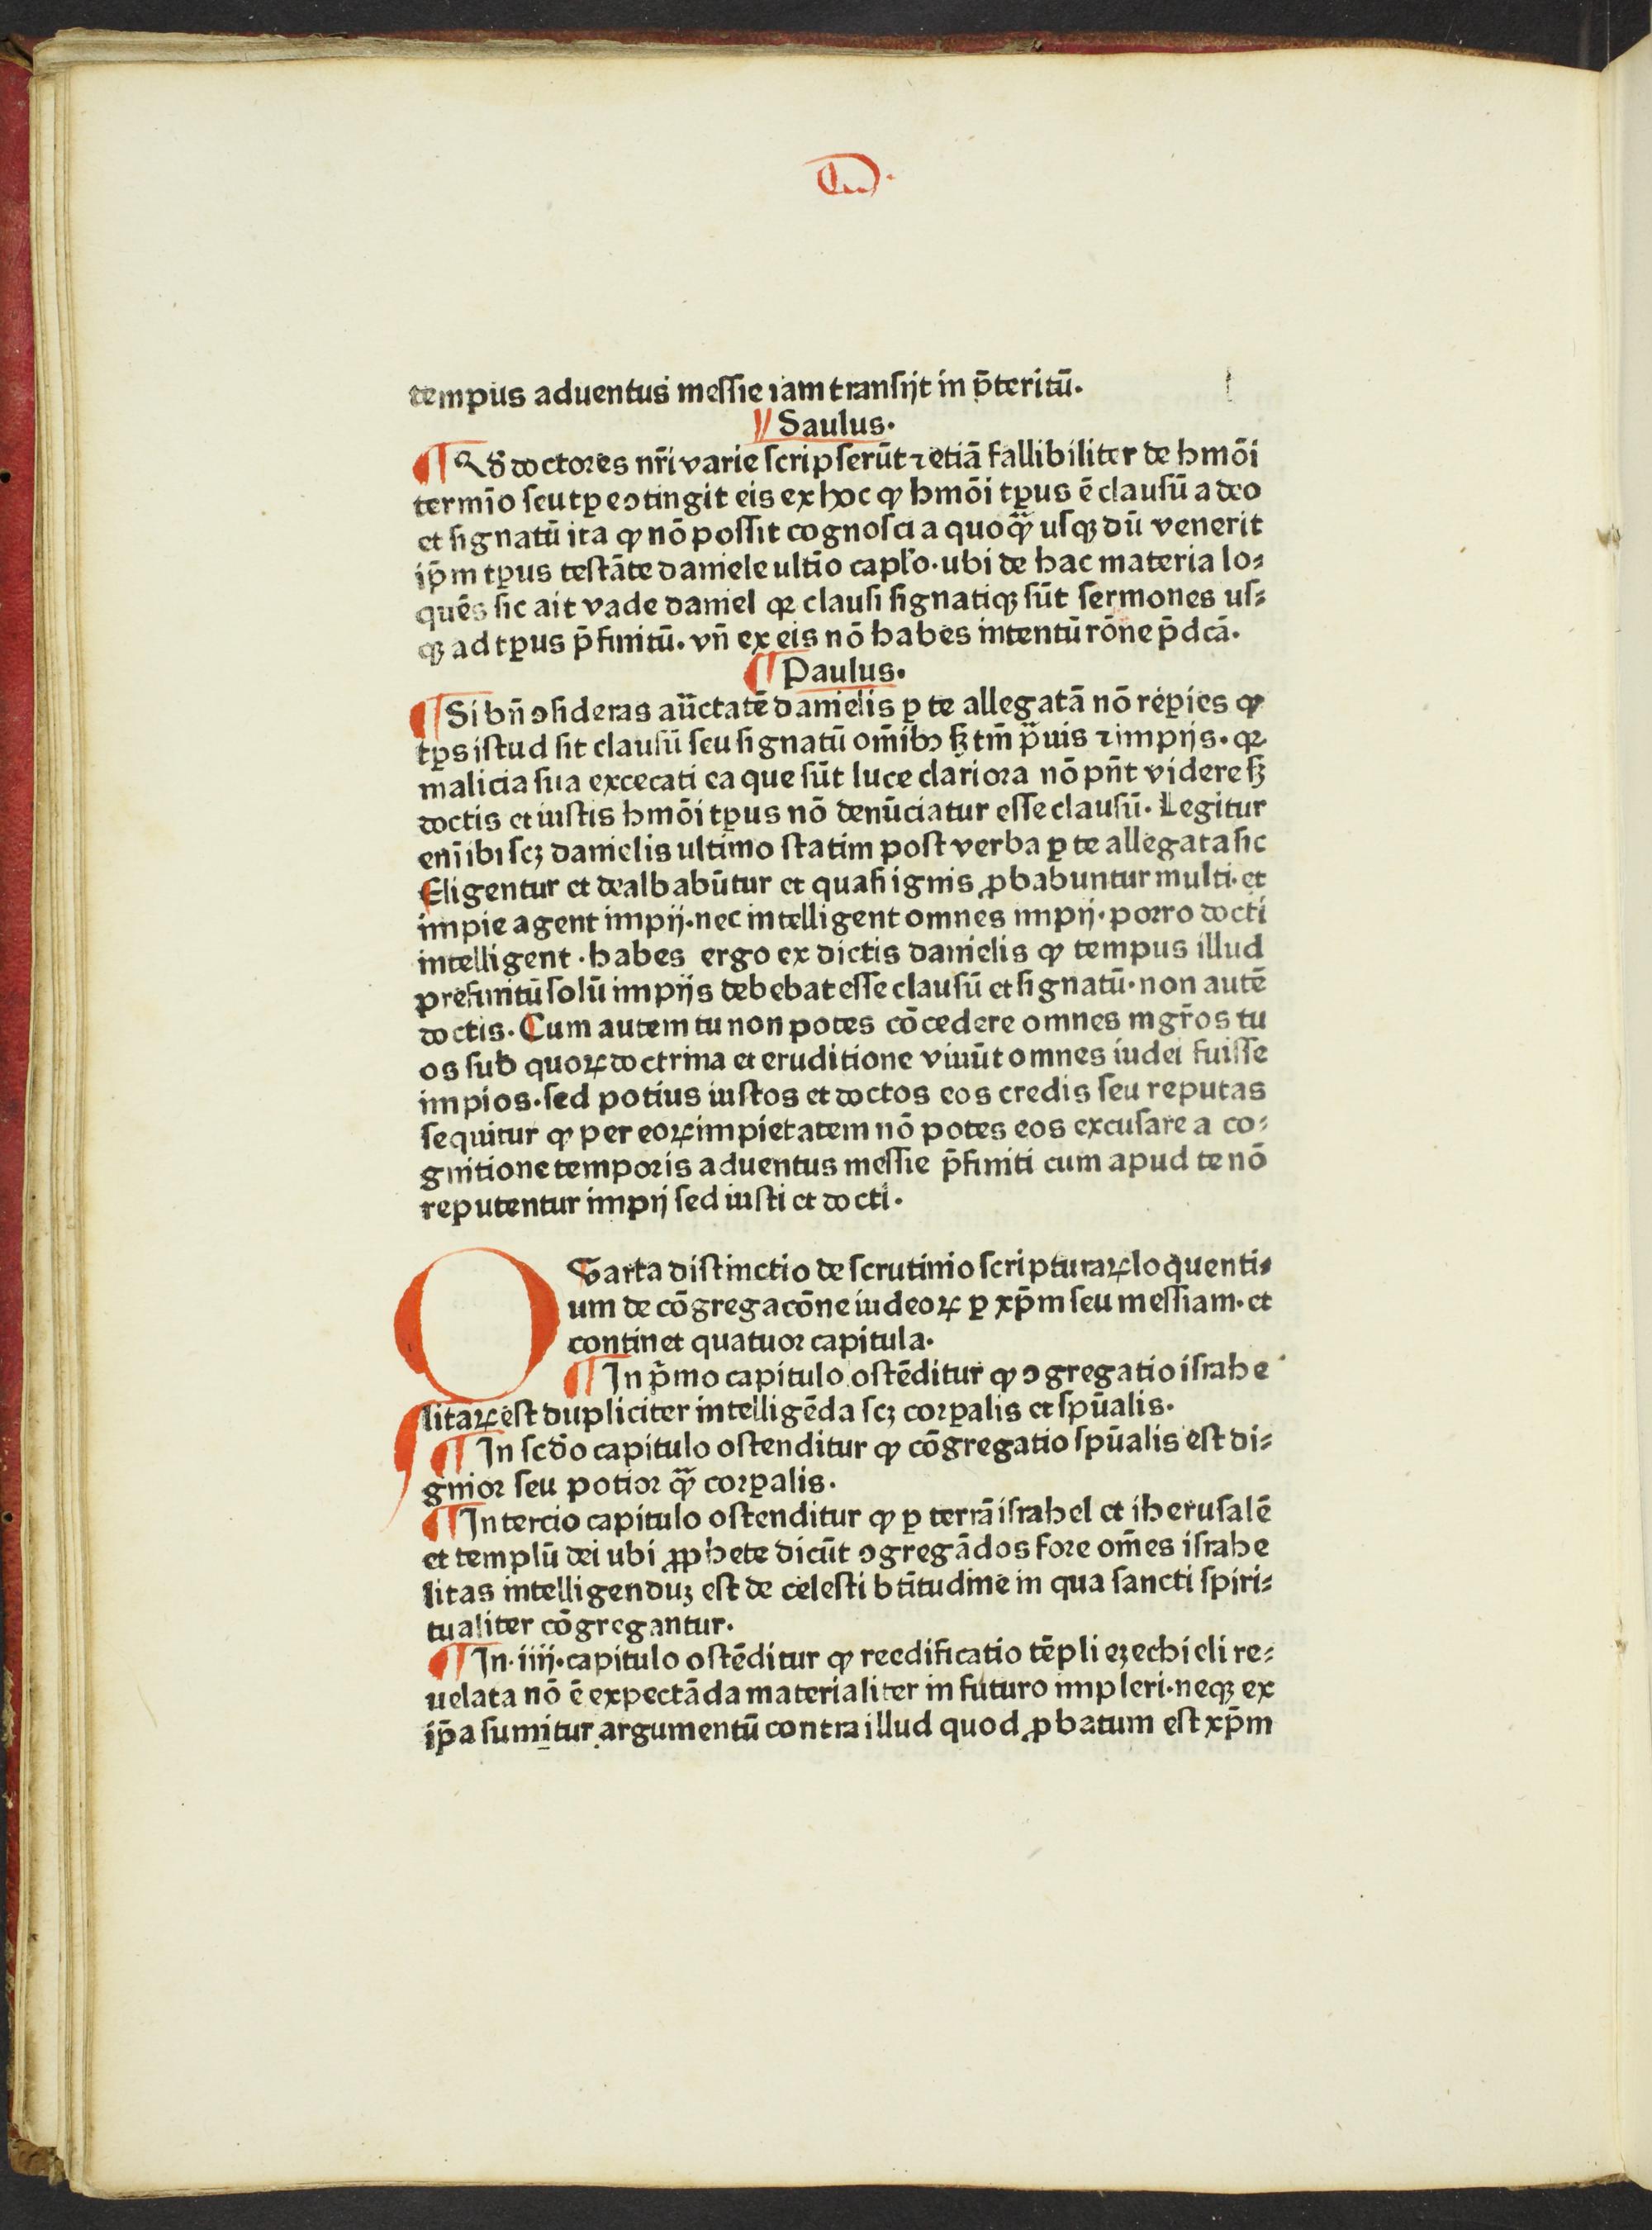 tempus aduentus messie iam transijt in p̄teritū.
Saulus.
¶ Qd doctores nr̄i varie scripserūt ⁊ etiā fallibiliter de hmōi
termīo seu tꝑe ↄtingit eis ex hoc ꝙ hmōi tꝑus ē clausū a deo
et signatū ita ꝙ nō possit cognosci a quoqᷓ usqꝫ dū venerit
ip̄m tꝑus testāte daniele ultīo capl'o. ubi de hac materia lo⸗
quēs sic ait vade daniel qꝛ clausi signatiqꝫ sūt sermones us⸗
qꝫ ad tꝑus p̄finitū. vn̄ ex eis nō habes intentū rōne p̄dcā.
¶ Paulus.
¶ Si bn̄ ↄsideras auc̄tatē danielis ꝑ te allegatā nō reꝑies ꝙ
tꝑs istud sit clausū seu signatū om̄ibꝫ sꝫ tm̄ pᷓuis ⁊ impijs. qꝛ
malicia sua excecati ea que sūt luce clariora nō pn̄t videre sꝫ
doctis et iustis hmōi tꝑus nō denūciatur esse clausū. Legitur
enī ibi scꝫ danielis ultimo statim post verba ꝑ te allegata sic
Eligentur et dealbabūtur et quasi ignis ꝓbabuntur multi. et
impie agent impij. nec intelligent omnes impij. porro docti
intelligent. habes ergo ex dictis danielis ꝙ tempus illud
prefinitū solū impijs debebat esse clausū et signatū. non autē
doctis. Cum autem tu non potes cōcedere omnes mgr̄os tu
os sub quoꝝ doctrina et eruditione viuūt omnes iudei fuisse
impios. sed potius iustos et doctos eos credis seu reputas
sequitur ꝙ per eoꝝ impietatem nō potes eos excusare a co⸗
gnitione temporis aduentus messie p̄finiti cum apud te nō
reputentur impij sed iusti et docti.
QVarta distinctio de scrutinio scripturaꝝ loquenti⸗
um de cōgregacōne iudeoꝝ ꝑ xp̄m seu messiam. et
continet quatuor capitula.
¶ In p̄mo capitulo ostēditur ꝙ ↄgregatio israhe
litaꝝ est dupliciter intelligēda scꝫ corꝑalis et spūalis.
¶ In scd̄o capitulo ostenditur ꝙ cōgregatio spūalis est di⸗
gnior seu potior qᷓ corꝑalis.
¶ In tercio capitulo ostenditur ꝙ ꝑ terrā israhel et iherusalē
et templū dei ubi ꝓphete dicūt ↄgregādos fore om̄es israhe
litas intelligenduꝫ est de celesti btītudine in qua sancti spiri⸗
tualiter cōgregantur.
¶ In. iiij. capitulo ostēditur ꝙ reedificatio tēpli eꝫechieli re⸗
uelata nō ē expectāda materialiter in futuro impleri. neqꝫ ex
ip̄a sumitur argumentū contra illud quod ꝓbatum est xp̄m